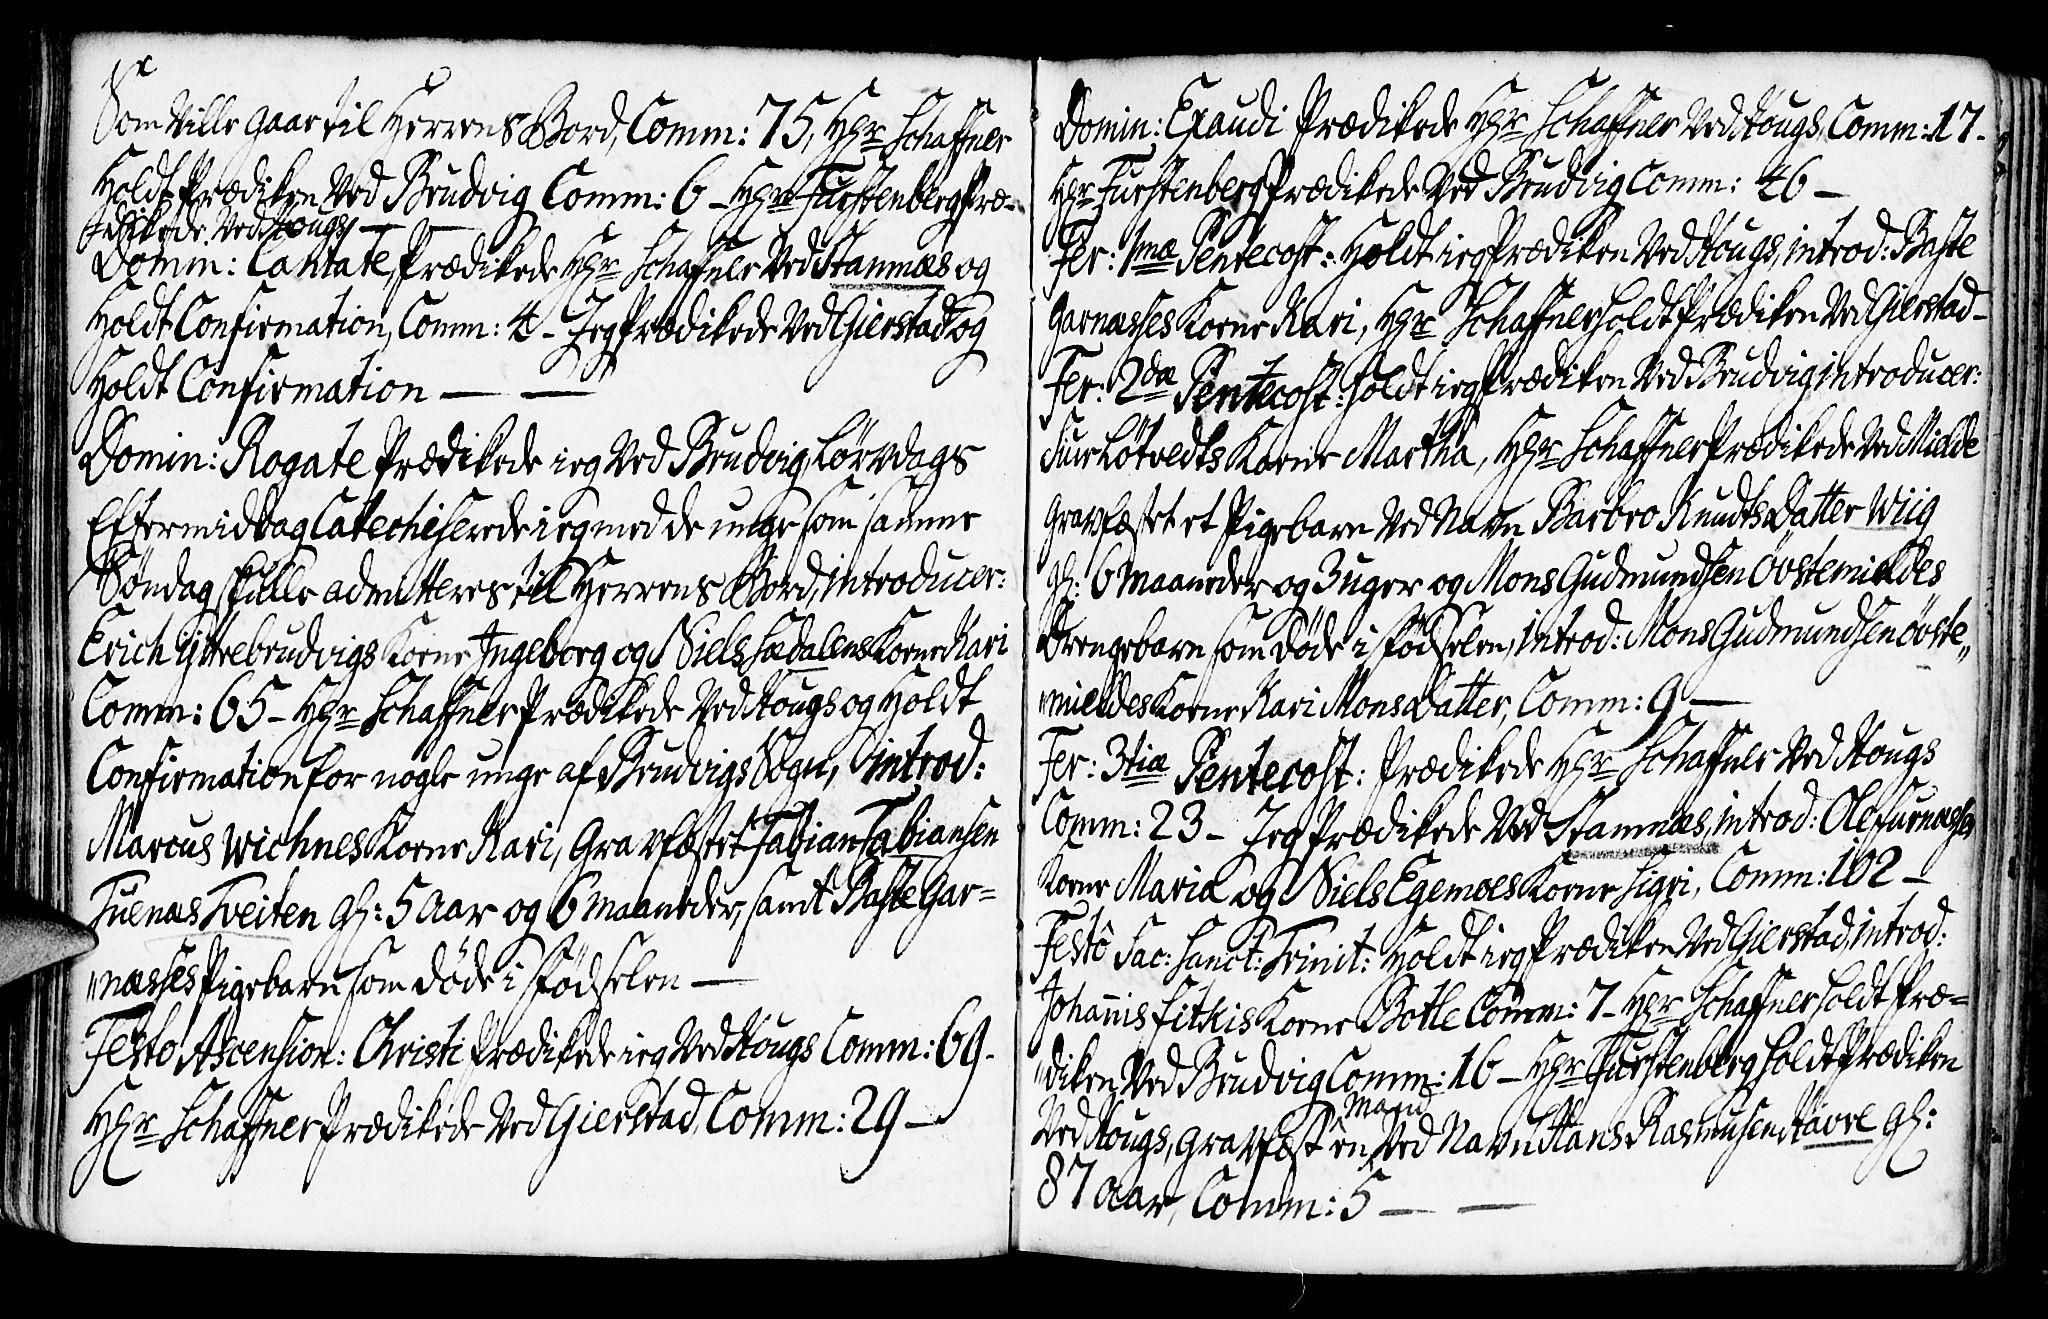 Som Ville gaae til Herrens Bord, Comm: 75, Hgr Schaffner
Holdt Prædiken Ved Brudvig Comm: 6 – Hgr Fürstenberg Præ-
dikede Ved Hougs –
Domin: Cantate, Prædikede Hgr Schaffner Ved Stamnæs og
Holdt Confirmation, Comm: 4 – Jeg Prædikede Ved Gierstad og
Holdt Confirmation — —
Domin: Rogate Prædikede ieg Ved Brudvig, Lørdags
Eftermiddag Catechiserede ieg med de unge som samme
Søndag skulle admitteres til Herrens Bord, introducer:
Erich yttrebrudvigs Kone Ingeborg og Niels Sædalens Kone Kari
Comm: 65 – Hgr Schaffner Prædikede Ved Hougs og Holdt
Confirmation for nogle unge af Brudvigs Sogn, introd:
Marcus Wichnes Kone Kari, Gravfæstet Fabian Fabiansen
Fuenæs Tveiten gl: 5 Aar og 6 Maaneder, samt Baste Gar=
„næsses Pigebarn som døde i Fødselen —
Festo Ascension: Christi Prædikede ieg Ved Hougs Comm: 69 –
Hgr Schaffner Prædikede Ved Gierstad, Comm: 29 –
Domin: Exaudi Prædikede Hgr Schaffner Ved Hougs, Comm: 17 –
Hgr Fürstenberg Prædikede Ved Brudvig Comm: 46 –
Fer: 1mæ Pentecost: Holdt ieg Prædiken Ved Hougs, introd: Baste
Garnæsses Kone Kari, Hgr Schaffner Holdt Prædiken Ved Gierstad –
Fer: 2dæ Pentecost: Holdt ieg Prædiken Ved Brudvig introducer:
Siur Løtvedts Kone Martha, Hgr Schaffner Prædikede Ved Mielde
Gravfæstet et Pigebarn Ved Navn Barbro Knudts Datter Wiig
gl: 6 Maaneder og 3 uger og Mons Gudmundsen Øvstemieldes
Drengebarn som døde i Fødselen, introd: Mons Gudmundsen øvste„
„mieldes Kone Kari Mons Datter, Comm: 9 —
Fer: 3tiæ Pentecost: Prædikede Hgr Schaffner Ved Hougs
Comm: 23 – Jeg Prædikede Ved Stamnæs, introd: Ole Furnæsses
Kone Maria og Niels Egemoes Kone Sigri, Comm: 102 –
Festô Sac: Sanct: Trinit: Holdt ieg Prædiken Ved Gierstad, introd:
Johannis Fitkis Kone Botle Comm: 7 – Hgr Schaffner Holdt Præ=
„diken Ved Brudvig Comm: 16 – Hgr Fürstenberg Holdt Prædiken
Ved Hougs, Gravfæst en Mand Ved Navn Hans Rasmusen Håvre gl:
87 Aar, Comm: 5 — —